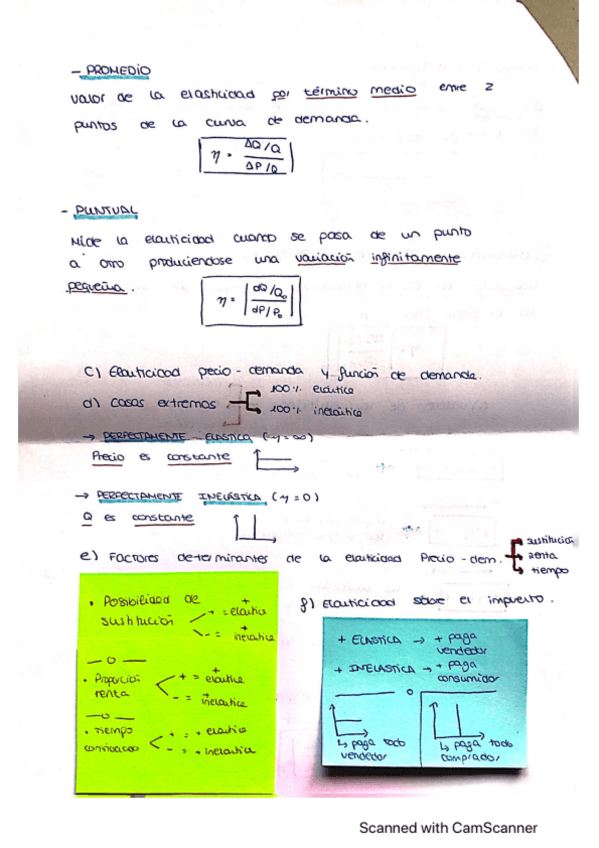 - PROMEDIO
valor de la elasticidad por término medio entre 2
puntos de la curva de demanda.
η = ΔQ/Q
ΔP/Q
- PUNTUAL
Mide la elasticidad cuando se pasa de un punto
a otro produciendose una variación infinitamente
pequeña.
η = | dQ/Q₀
dP/P₀ |
c) Elasticidad precio - demanda y función de demanda.
d) casos extremos
100% elástica
100% inelástica
→ PERFECTAMENTE ELASTICA (η=∞)
Precio es constante
→ PERFECTAMENTE INELÁSTICA (η=0)
Q es constante
e) FACTORES determinantes de la elasticidad Precio - dem.
sustitución
renta
tiempo
• Posibilidad de
sustitución
+ = + elastica
- = + inelastica
— o —
• Proporción
renta
+ = + elastica
- = + inelastica
— o —
• tiempo
+ = + elastica
- = + inelastica
f) Elasticidad sobre el impuesto.
+ ELASTICA → + paga
vendedor
+ INELASTICA → + paga
consumidor
o
↳ paga todo
vendedor
↳ paga todo
comprador
Scanned with CamScanner